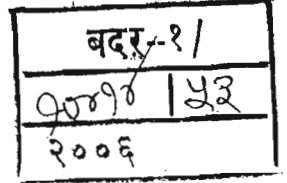 बदर--१/
१०४१४ | ५३
२००६